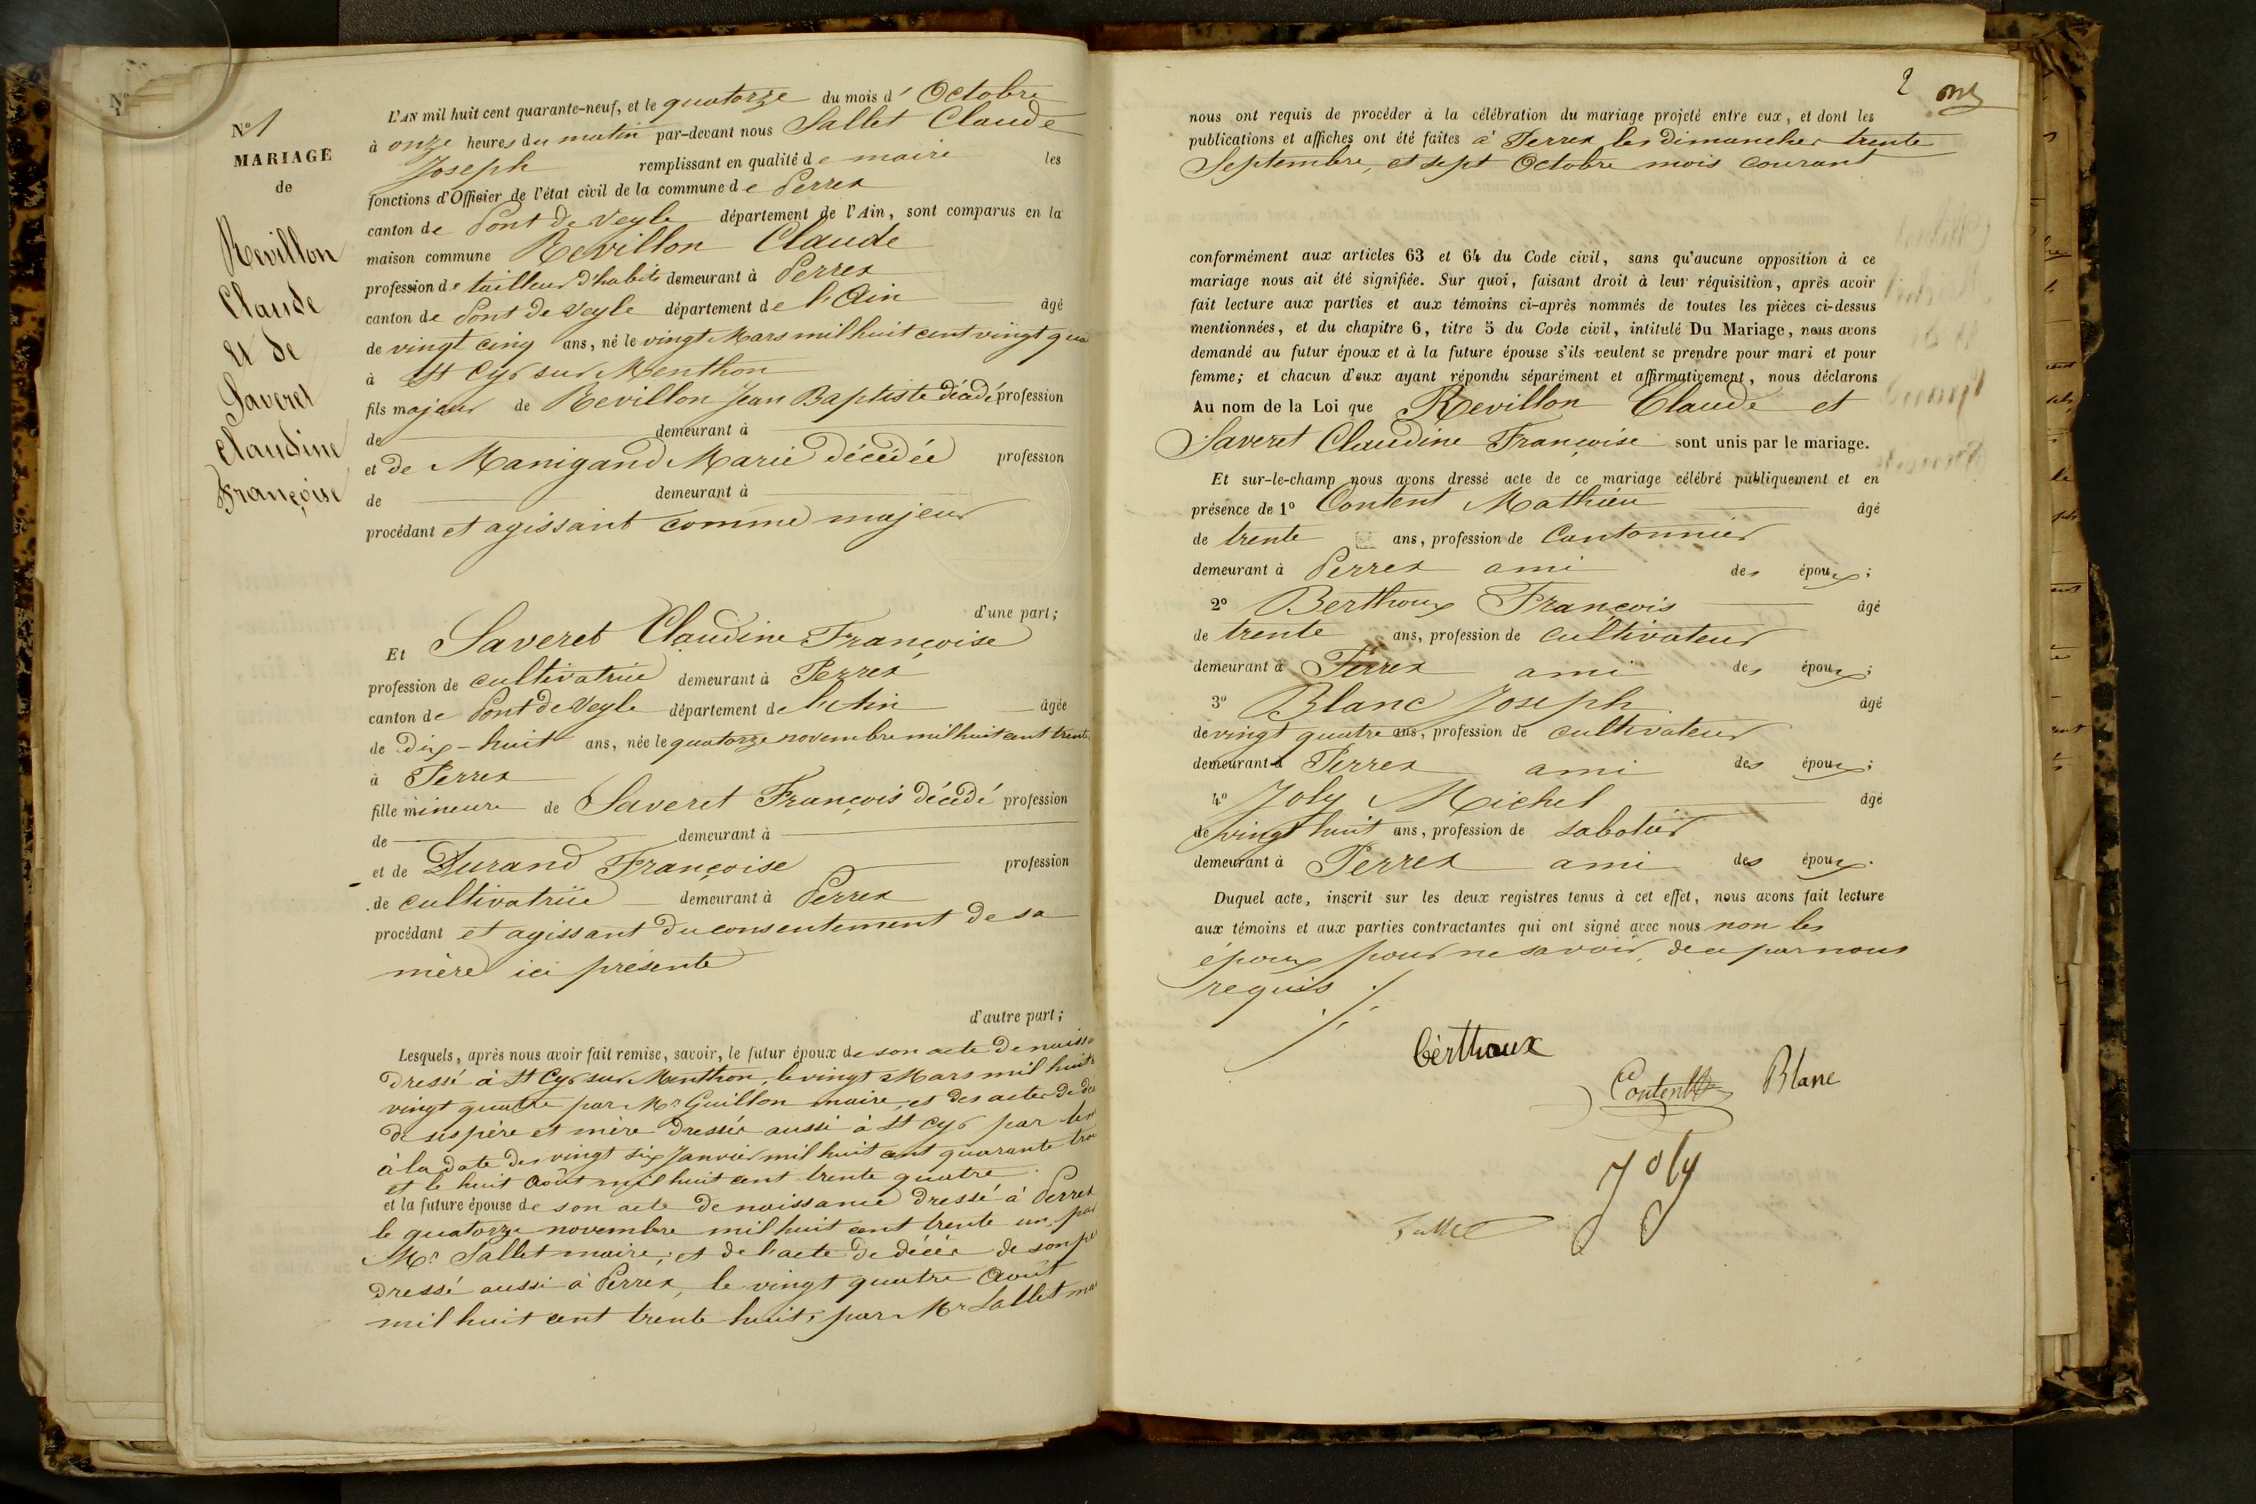 N°
N° 1
MARIAGE
de
Revillon
Claude
et de
Saveret
Claudine
Françoise
L'AN mil huit cent quarante-neuf, et le quatorze du mois d' Octobre
à onze heures du matin par-devant nous Sallet Claude
Joseph remplissant en qualité de maire les
fonctions d'Officier de l'état civil de la commune de Perrex
canton de Pont de Veyle département de l'Ain, sont comparus en la
maison commune Revillon Claude
profession de tailleur d'habits demeurant à Perrex
canton de Pont de Veyle département de l'Ain âgé
de vingt cinq ans, né le vingt Mars mil huit cent vingt qua
à St Cyr sur Menthon
fils majeur de Revillon Jean Baptiste décédé profession
de demeurant à
et de Manigand Marie décédée profession
de demeurant à
procédant et agissant comme majeur
d'une part;
Et Saveret Claudine Françoise
profession de cultivatrice demeurant à Perrex
canton de Pont de Veyle département de l'Ain âgée
de dix-huit ans, née le quatorze novembre mil huit cent trente
à Perrex
fille mineure de Saveret François décédé profession
de demeurant à
et de Durand Françoise profession
de cultivatrice demeurant à Perrex
procédant et agissant du consentement de sa
mère ici présente
d'autre part;
Lesquels, après nous avoir fait remise, savoir, le futur époux de son acte de naiss
dressé à St Cyr sur Menthon, le vingt Mars mil huit
vingt quatre par Mr Guillon maire, et des actes de dé
de ses père et mère dressés aussi à St Cyr par
à la date des vingt six Janvier mil huit cent quarante
et le huit Août mil huit cent trente quatre
et la future épouse de son acte de naissance dressé à Perrex
le quatorze novembre mil huit cent trente un, par
Mr Sallet maire; et de l'acte de décès de son
dressé aussi à Perrex, le vingt quatre Août
mil huit cent trente huit, par Mr Sallet
2
nous ont requis de procéder à la célébration du mariage projeté entre eux, et dont les
publications et affiches ont été faites à Perrex les dimanches trente
Septembre, et sept Octobre mois courant
conformément aux articles 63 et 64 du Code civil, sans qu'aucune opposition à ce
mariage nous ait été signifiée. Sur quoi, faisant droit à leur réquisition, après avoir
fait lecture aux parties et aux témoins ci-après nommés de toutes les pièces ci-dessus
mentionnées, et du chapitre 6, titre 5 du Code civil, intitulé Du Mariage, nous avons
demandé au futur époux et à la future épouse s'ils veulent se prendre pour mari et pour
femme; et chacun d'eux ayant répondu séparément et affirmativement, nous déclarons
Au nom de la Loi que Revillon Claude et
Saveret Claudine Françoise sont unis par le mariage.
Et sur-le-champ nous avons dressé acte de ce mariage célébré publiquement et en
présence de 1° Content Mathieu âgé
de trente ans, profession de Cantonnier
demeurant à Perrex ami des époux;
2° Berthoux François âgé
de trente ans, profession de cultivateur
demeurant à Perrex ami des époux;
3° Blanc Joseph âgé
de vingt quatre ans, profession de cultivateur
demeurant à Perrex ami des époux;
4° Joly Michel âgé
de vingt huit ans, profession de sabotier
demeurant à Perrex ami des époux.
Duquel acte, inscrit sur les deux registres tenus à cet effet, nous avons fait lecture
aux témoins et aux parties contractantes qui ont signé avec nous non les
époux pour ne savoir, de ce par nous
requis ./.
bèrthoux
Content
Blanc
Joly
Sallet